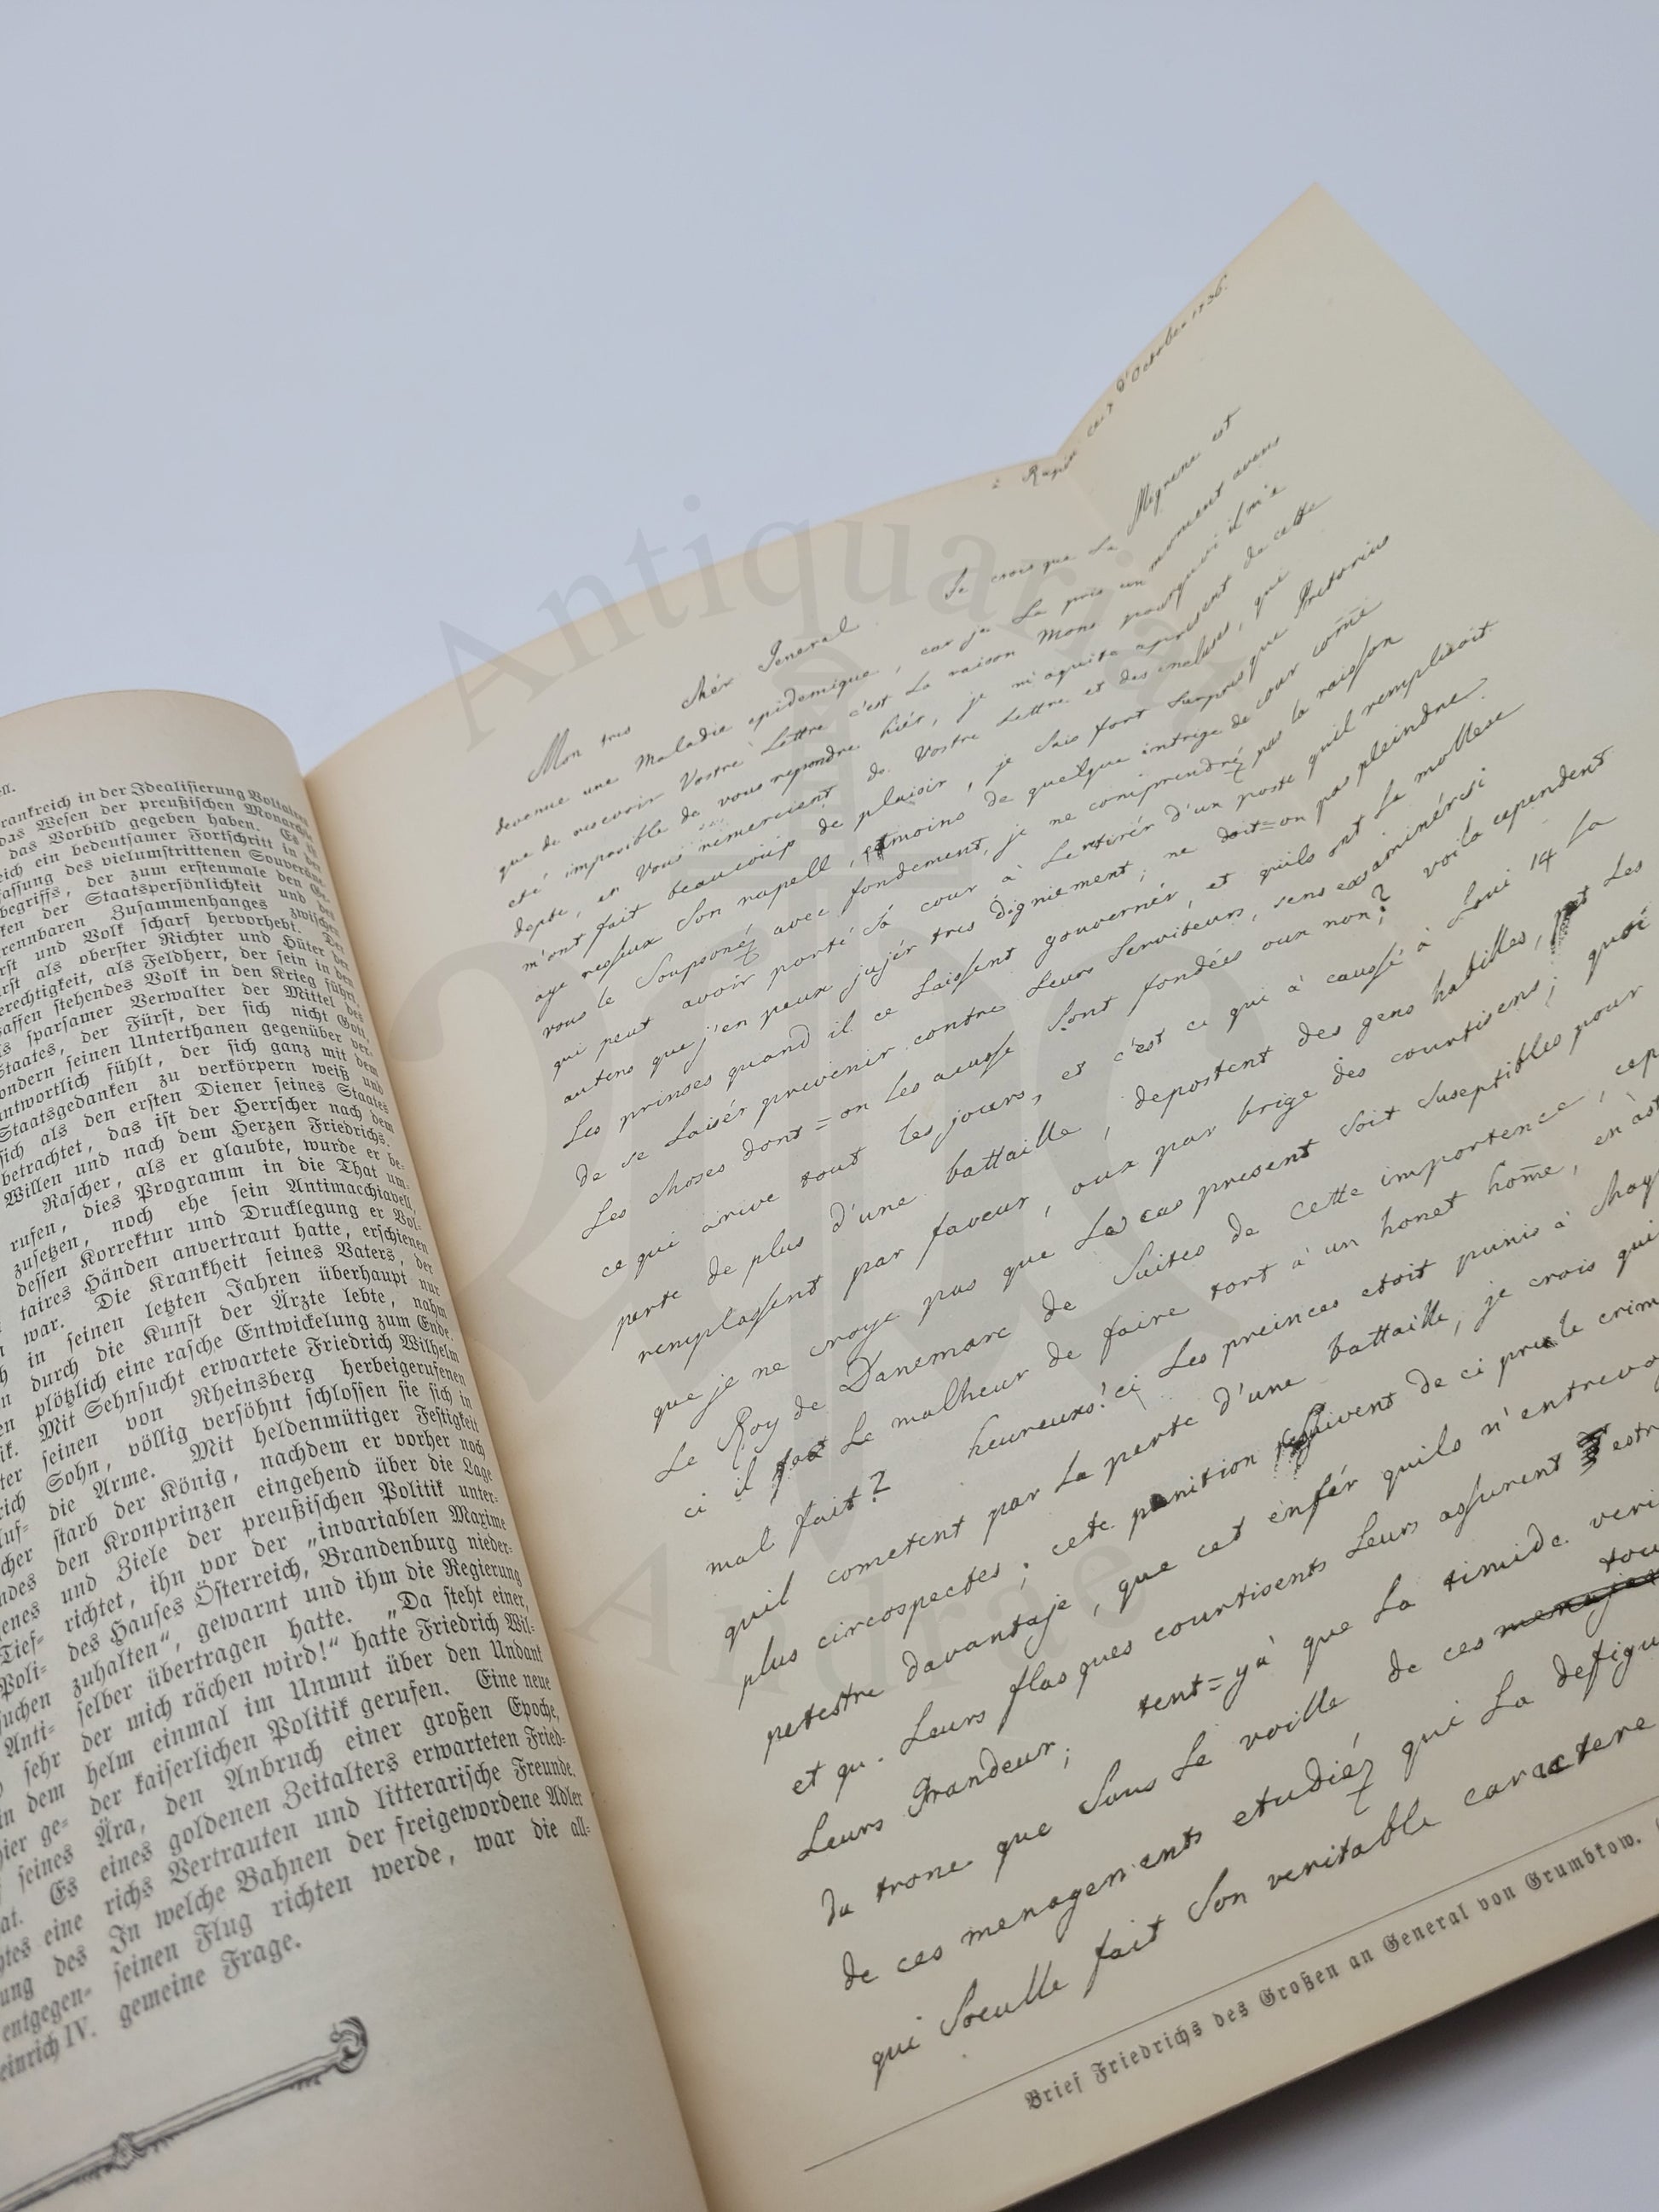 ll.
rankreich in der Idealisierung Voltaires
das Wesen der preußischen Monarchie
das Vorbild gegeben haben. Es ist
eich ein bedeutsamer Fortschritt in der
assung des vielumstrittenen Souverän-
begriffs, der zum erstenmale den Ge-
ken der Staatspersönlichkeit und den
rennbaren Zusammenhanges zwischen
rst und Volk scharf hervorhebt. Der
rst als oberster Richter und Hüter der
erechtigkeit, als Feldherr, der sein in dem
affen stehendes Volk in den Krieg führt,
ls sparsamer Verwalter der Mittel des
Staates, der Fürst, der sich nicht Gott,
ondern seinen Unterthanen gegenüber ver-
antwortlich fühlt, der sich ganz mit dem
Staatsgedanken zu verkörpern weiß und
sich als den ersten Diener seines Staates
betrachtet, das ist der Herrscher nach dem
Willen und nach dem Herzen Friedrichs.
Rascher, als er glaubte, wurde er be-
rufen, dies Programm in die That um-
zusetzen, noch ehe sein Antimacchiavell,
dessen Korrektur und Drucklegung er Vol-
taires Händen anvertraut hatte, erschienen
war. Die Krankheit seines Vaters, der
in seinen letzten Jahren überhaupt nur
durch die Kunst der Ärzte lebte, nahm
plötzlich eine rasche Entwickelung zum Ende.
Mit Sehnsucht erwartete Friedrich Wilhelm
seinen von Rheinsberg herbeigerufenen
Sohn, völlig versöhnt schlossen sie sich in
die Arme. Mit heldenmütiger Festigkeit
starb der König, nachdem er vorher noch
den Kronprinzen eingehend über die Lage
und Ziele der preußischen Politik unter-
richtet, ihn vor der „invariablen Maxime
des Hauses Österreich, Brandenburg nieder-
zuhalten“, gewarnt und ihm die Regierung
selber übertragen hatte. „Da steht einer,
der mich rächen wird!“ hatte Friedrich Wil-
helm einmal im Unmut über den Undank
der kaiserlichen Politik gerufen. Eine neue
Ära, den Anbruch einer großen Epoche,
eines goldenen Zeitalters erwarteten Fried-
richs Vertrauten und litterarische Freunde.
In welche Bahnen der freigewordene Adler
seinen Flug richten werde, war die all-
gemeine Frage.
einrich IV.
à Rupin d'Octobre 1736.
Mon tres chér General. Je crois que La Migrene est
devenue une Maladie epidemique, car je La pris un moment avens
que de rescevoir Vostre Lettre c'est La raison Mons pourquoi il m'a
eté impossible de vous repondre hiér, je m'aquite apresent de cette
depte, en Vous remerciant de Vostre Lettre et des incluses, qui
m'ont fait beaucoup de plaisir, je suis fort surpris que Pretorius
aye resseux Son rapell, amoins de quelque intrige de cour come
vous le Souponéz avec fondement, je ne comprendré pas la raisson
qui peut avoir porté Sa cour à Le retirér d'un poste quil remplisoit
autens que j'en peux jujér tres dignement; ne doit=on pas pleindre
Les prinses quand il ce Laissent gouvernér, et quils ont La mollesse
de se Laisér prevenir contre Leurs Serviteurs, sens examinér si
Les choses dont=on les acusse sont fondées oux non? voila cependent
ce qui arive tout les jours, et c'est ce qui à caussé à Loui 14 La
perte de plus d'une battaille, depostent des gens habilles, et Les
remplassent par faveur, oux par brige des courtisens; quoi
que je ne croye pas que Le cas present soit suseptibles pour
Le Roy de Danemarc de Suites de cette importence, cep
ci il fait Le malheur de faire tort à un honet home, en ast
mal fait? heureux! ci Les preinces etoit punis à chaq
quil cometent par La perte d'une battaille, je crois qui
plus circospectes; cete punition Suivent de ci prés le crim
petestre davantaje, que cet enfér quils n'entrevo
et qu. Leurs flasques courtisents Leurs assurent estr
Leurs Grandeur; tent=yà que La timide veri
du trone que Sous Le voille de ces
de ces menagements etudiéz qui La defigu
qui Seulle fait Son veritable caractere
Brief Friedrichs des Großen an General von Grumbkow.
Antiquariat
Andrae